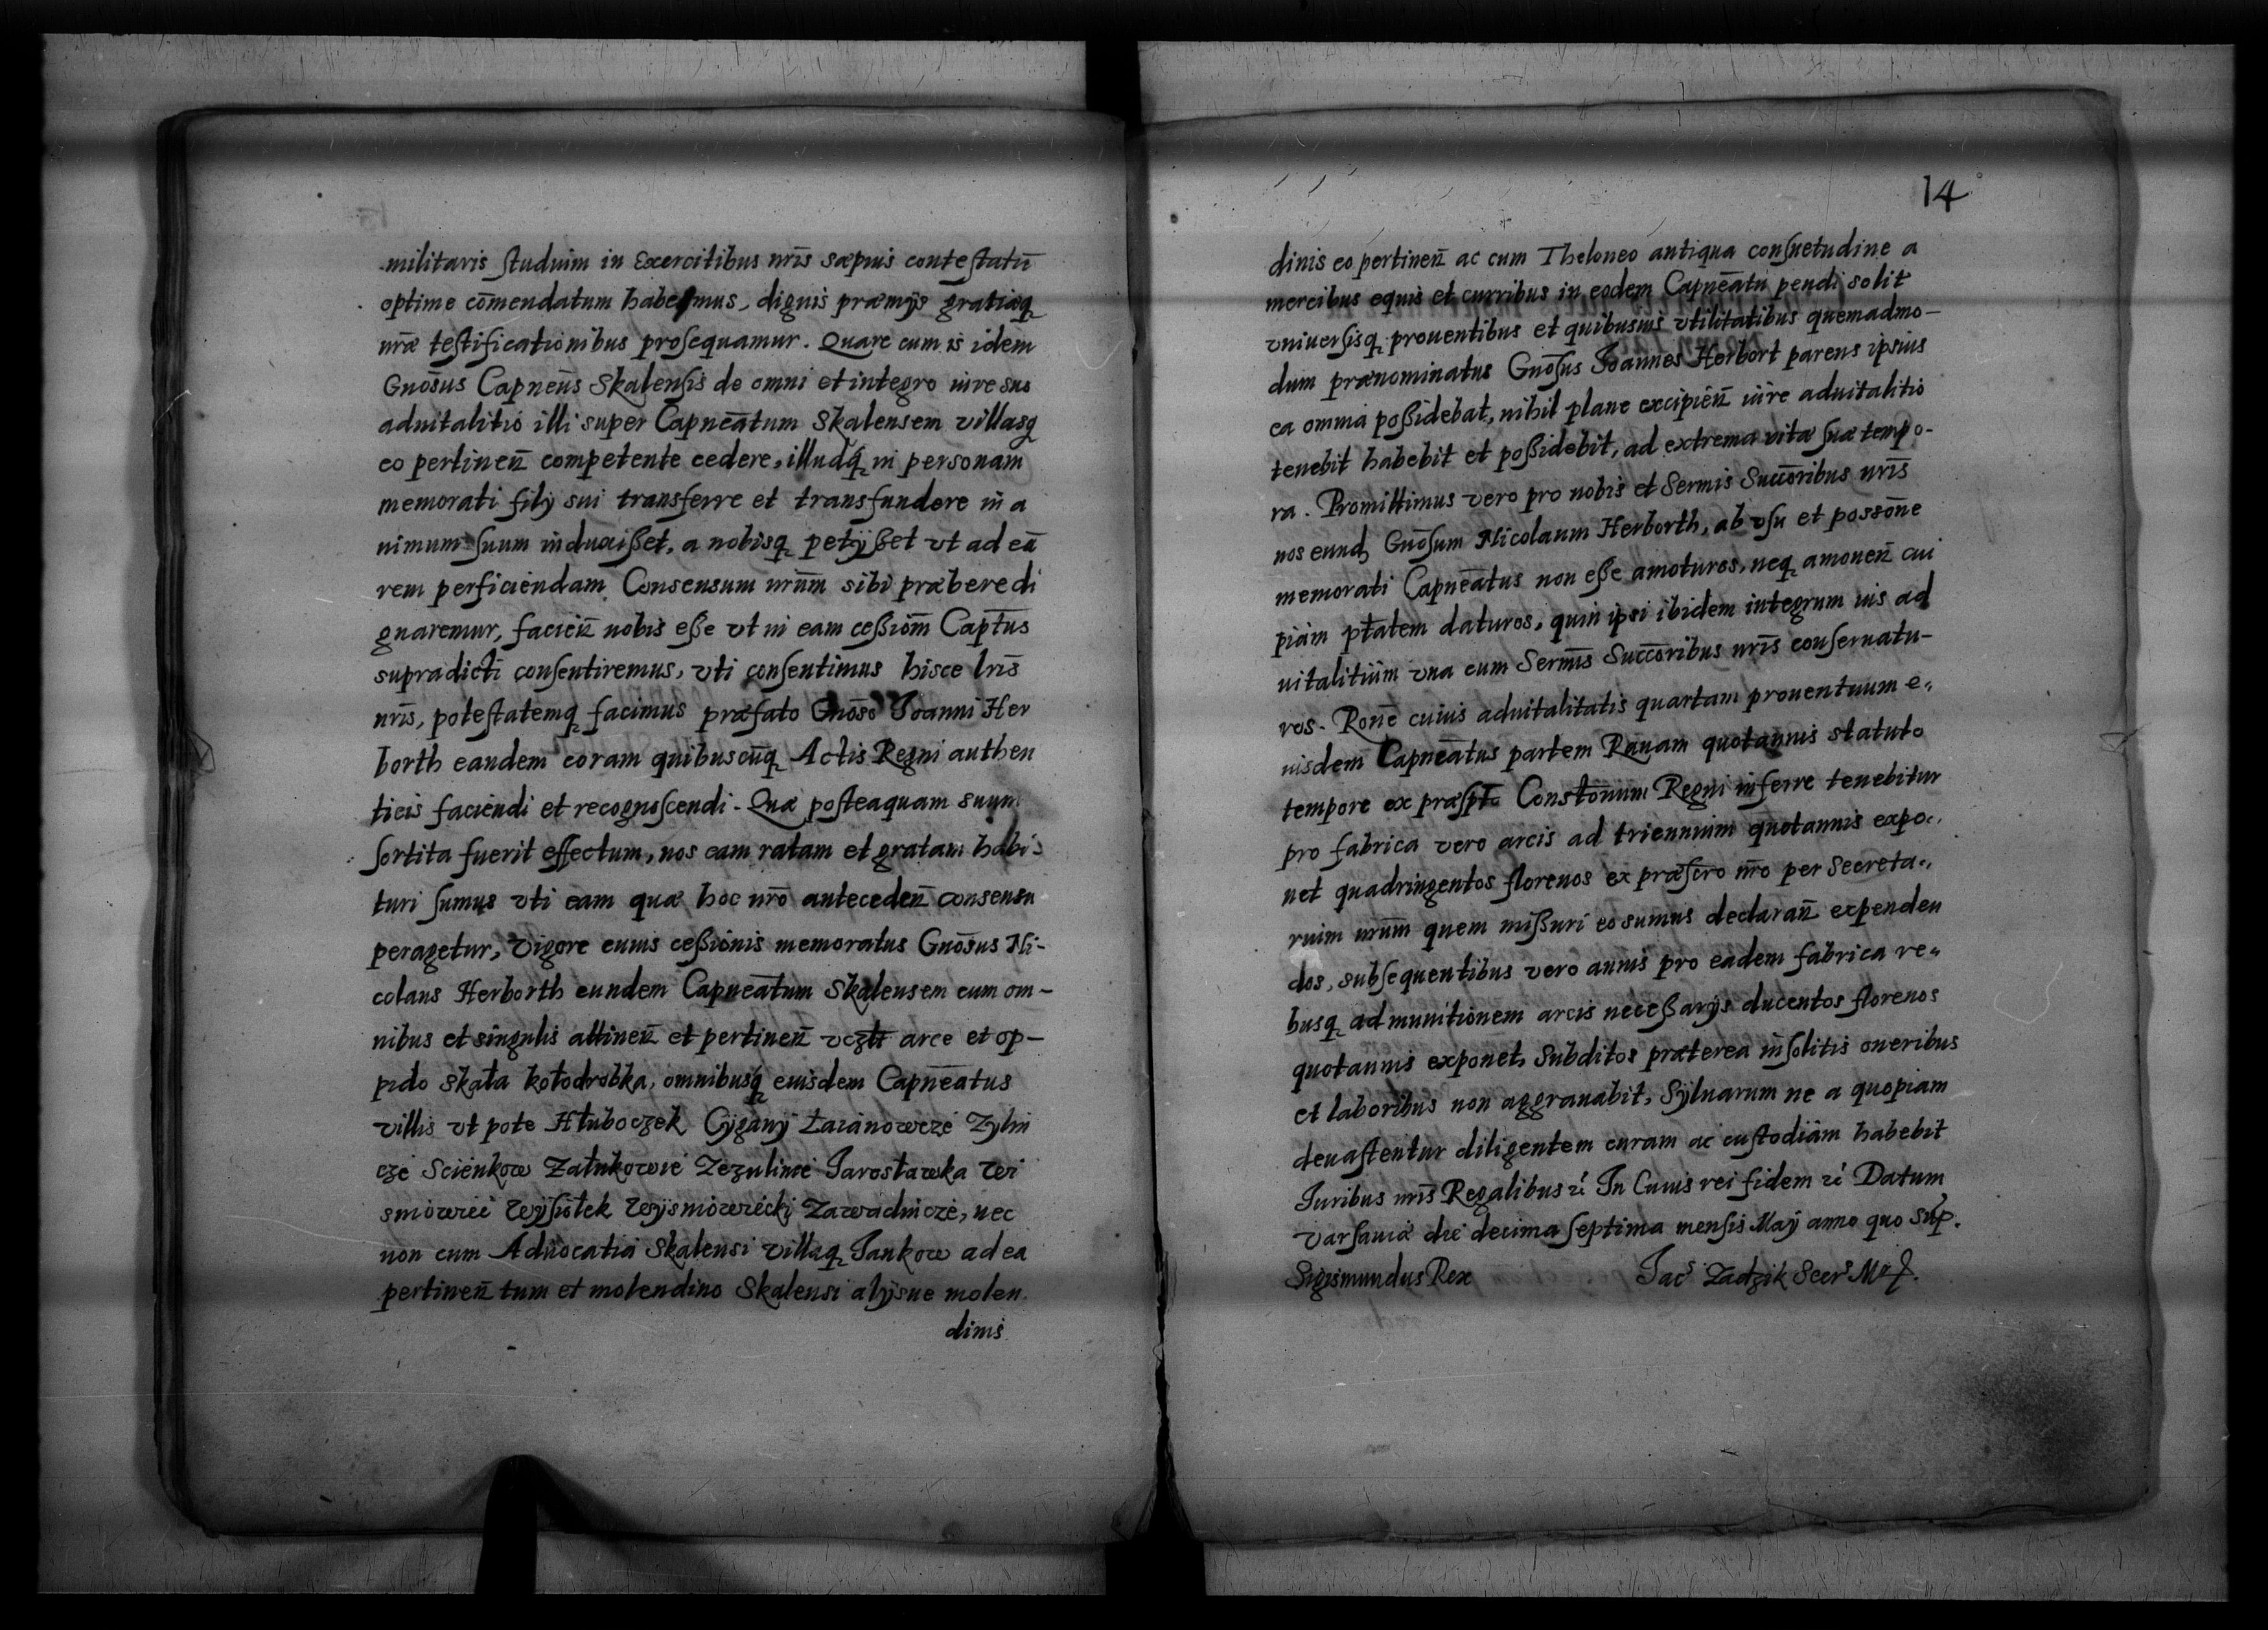 militaris studium in Exercitibus nrīs sæpius contestatū
optime cōmendatum habemus, dignis præmijs gratiæq
nrǣ testificationibus prosequamur. Quare cum is idem
Gnōsus Capneūs Skalensis de omni et integro iure suo
aduitalitio illi super Capneātum Skalensem villasq
eo pertineñ competente cedere, illudq in personam
memorati filij sui transferre et transfundere in a
nimum suum induxißet, a nobisq petijßet vt ad eā
rem perficiendam Consensum nrūm sibi præbere di
gnaremur, facieñ nobis eße vt in eam ceßiōm Capt̄us
supradicti consentiremus, vti consentimus hisce lrīs
nrīs, potestatemq facimus præfato Gnōso Joanni Her
borth eandem coram quibuscūq Actis Regni authen
ticis faciendi et recognoscendi. Quæ posteaquam suum
sortita fuerit effectum, nos eam ratam et gratam habi-
turi sumus vti eam quæ hoc nrō antecedeñ consensu
peragetur, Vigore cuius ceßionis memoratus Gnōsus Ni-
colaus Herborth eundem Capneātum Skalensem cum om-
nibus et singulis attineñ et pertineñ vczlt arce et op-
pido Skała kołodrobka, omnibusq eiusdem Capneātus
villis vt pote Hłuboczek Cÿganÿ Łaianowcze Zylin
cze Scienkow Załukowie Zezulince Jarosławka Wi
sniowiec Wÿsiołek Wÿsniowieckj Zawadincze, nec
non cum Aduocatia Skalensi villaq Jankow ad ea
pertineñ tum et molendino Skalensi alÿsue molen
dinis
14
dinis eo pertineñ ac cum Theloneo antiqua consuetudine a
mercibus equis et curribus in eodem Capneātu pendi solit
vniuersisq prouentibus et quibusuis vtilitatibus quemadmo-
dum prænominatus Gnōsus Joannes Herbort parens ipsius
ea omnia poßidebat, nihil plane excipieñ iure aduitalitio
tenebit habebit et poßidebit, ad extrema vitæ suæ tempo-
ra. Promittimus vero pro nobis et Sermis Succōribus nrīs
nos eund Gnōsum Nicolaum Herborth, ab vsu et possōne
memorati Capneātus non eße amoturos, neq amoueñ cui
piam ptātem daturos, quin ipsi ibidem integrum ius ad
uitalitium vna cum Sermīs Succōribus nrīs conseruatu-
ros. Ronē cuius aduitalitatis quartam prouentuum e-
iusdem Capneātus partem Rauam quotannis statuto
tempore ex præspto Constōnum Regni inferre tenebitur
pro fabrica vero arcis ad triennium quotannis expo-
net quadringentos florenos ex præscro nrō per Secreta-
rium nrūm quem mißuri eo sumus declarañ expenden
dos, subsequentibus vero annis pro eadem fabrica re-
busq ad munitionem arcis neceßarijs ducentos florenos
quotannis exponet, Subditos præterea insolitis oneribus
et laboribus non aggrauabit, Syluarum ne a quopiam
deuastentur diligentem curam ac custodiam habebit
Juribus nrīs Regalibus ꝛc̄ In Cuius rei fidem ꝛc̄ Datum
Varsauiæ die decima septima mensis Maij anno quo sup.
Sigismundus Rex Jacs Zadzik Secrs Mrf.